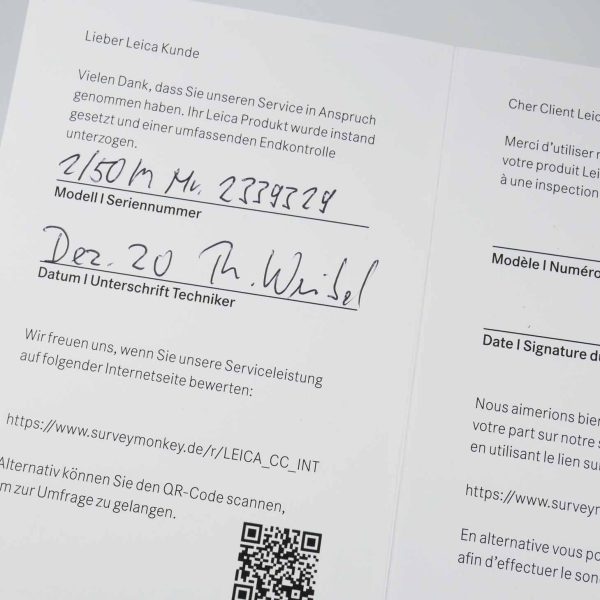 Lieber Leica Kunde
Vielen Dank, dass Sie unseren Service in Anspruch
genommen haben. Ihr Leica Produkt wurde instand
gesetzt und einer umfassenden Endkontrolle
unterzogen.
2/50 M Nr. 2339329
Modell | Seriennummer
Dez. 20 Th. Weibel
Datum | Unterschrift Techniker
Wir freuen uns, wenn Sie unsere Serviceleistung
auf folgender Internetseite bewerten:
https://www.surveymonkey.de/r/LEICA_CC_INT
Alternativ können Sie den QR-Code scannen,
m zur Umfrage zu gelangen.
Cher Client Leic
Merci d'utiliser
votre produit Lei
à une inspection
Modèle | Numéro
Date | Signature du
Nous aimerions bien
votre part sur notre s
en utilisant le lien su
https://www.surveymo
En alternative vous po
afin d'effectuer le son